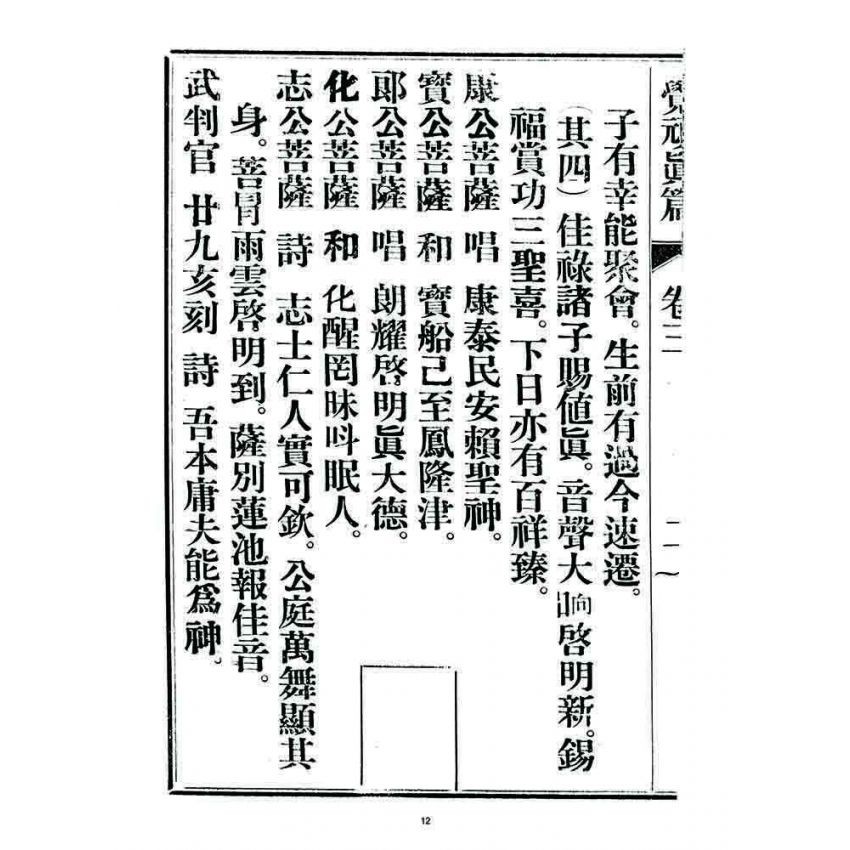 覺夜眞篇 卷三
子有幸能聚會。生前有過今速遷。
(其四)佳祿諸子賜値眞。音聲大响啓明新。錫
福賞功三聖喜。下日亦有百祥臻。
康公菩薩 唱 康泰民安賴聖神。
寶公菩薩 和 寶船已至鳳隆津。
郎公菩薩 唱 朗耀啓明眞大德。
化公菩薩 和 化醒罔昧呌眠人。
志公菩薩 詩 志士仁人實可欽。公庭萬舞顯其
身。菩冐雨雲啓明到。薩別蓮池報佳音。
武判官 廿九亥刻 詩 吾本庸夫能爲神。
12